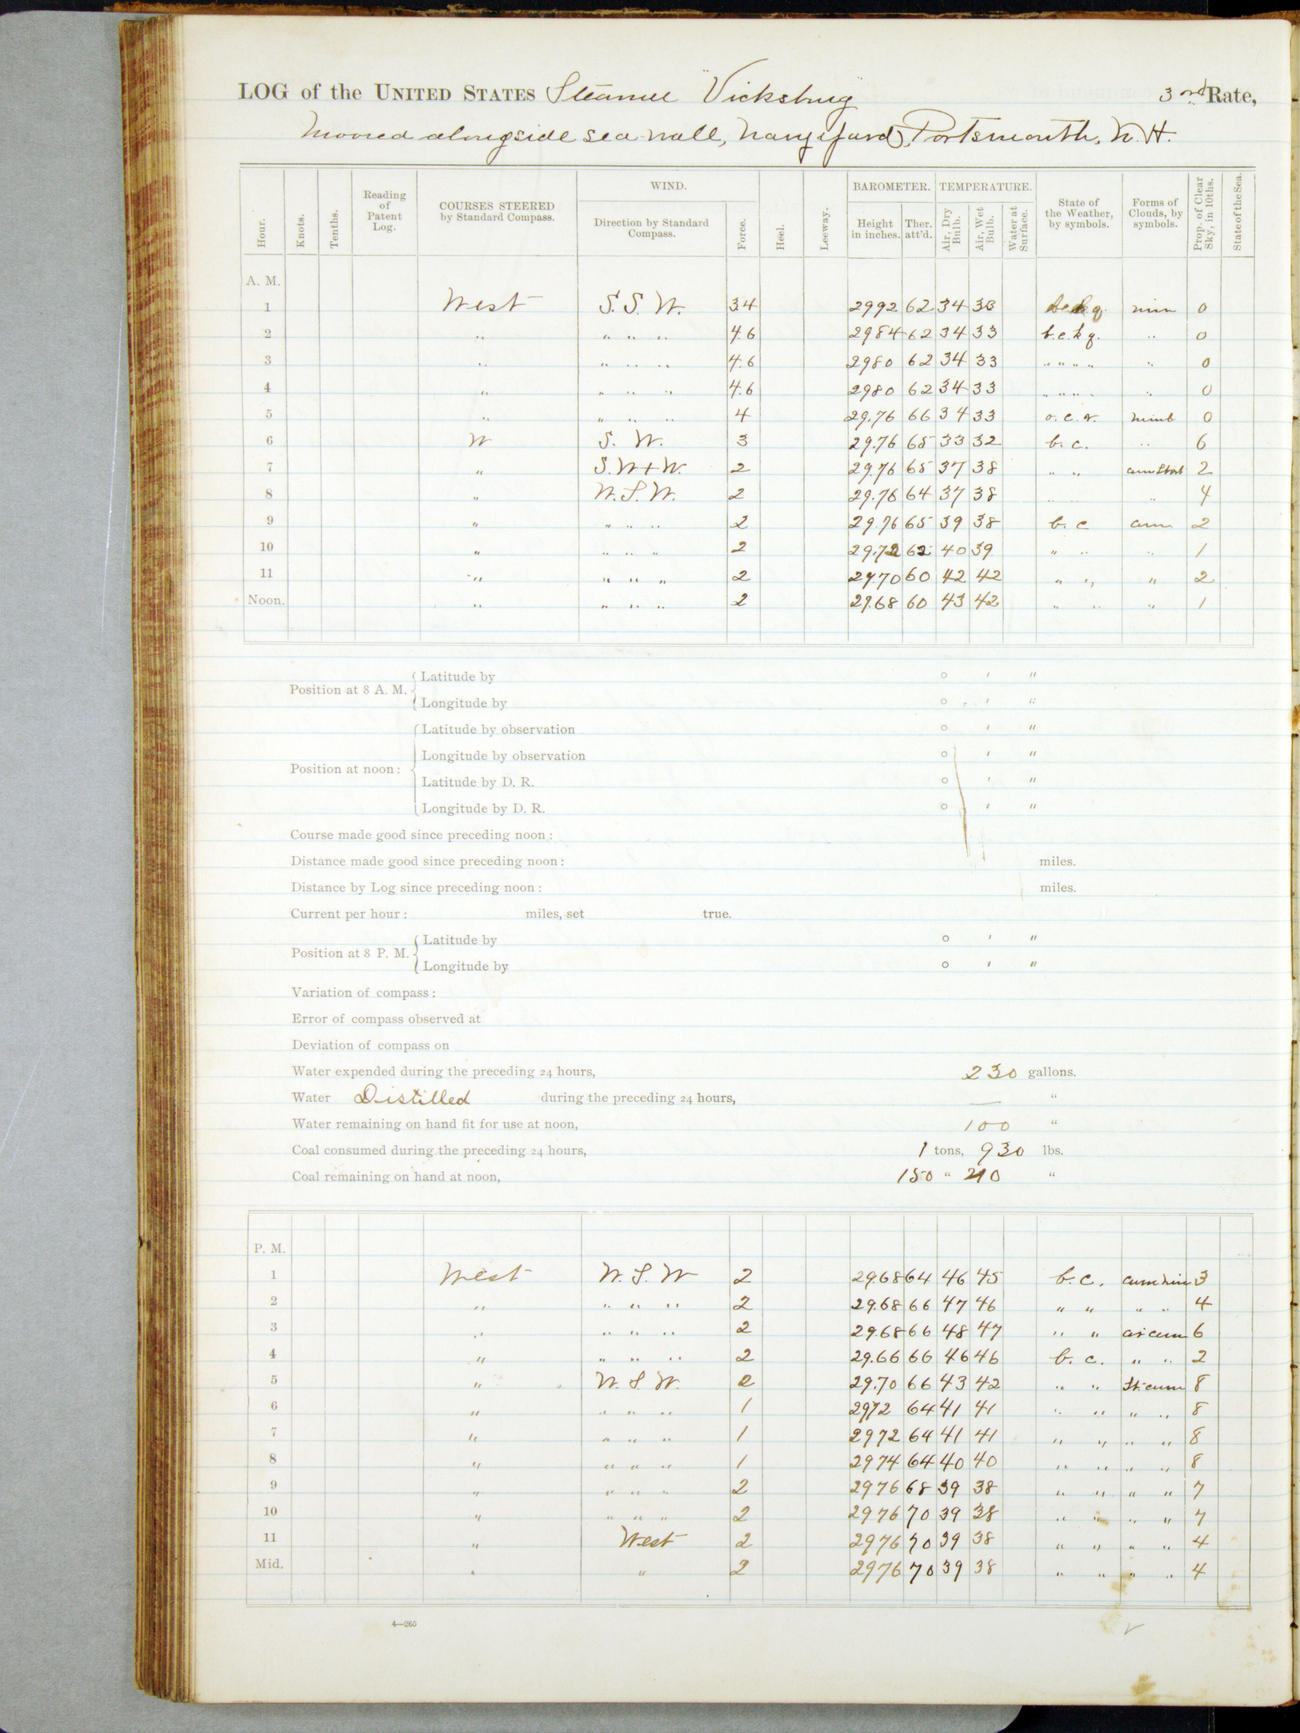 LOG of the UNITED STATES Steamer "Vicksburg" 3rd Rate,
Moored alongside sea-wall, Navy Yard, Portsmouth, N.H.
Hour. Knots. Tenths. Reading of Patent Log. COURSES STEERED by Standard Compass. WIND. Direction by Standard Compass. Force. Heel. Leeway. BAROMETER. Height in inches. Ther. att'd. TEMPERATURE. Air, Dry Bulb. Air, Wet Bulb. Water at Surface. State of the Weather, by symbols. Forms of Clouds, by symbols. Prop. of Clear Sky, in 10ths. State of the Sea.
A. M.
1 West S.S.W. 3.4 29.92 62 34 33 nim 0
2 " " " " 4.6 29.84 62 34 33 b.c.k q. " 0
3 " " " " 4.6 29.80 62 34 33 " " " " " 0
4 " " " " 4.6 29.80 62 34 33 " " " " " 0
5 " " " " 4 29.76 66 34 33 o.c.r. nimb 0
6 W S. W. 3 29.76 65 33 32 b.c. " 6
7 " S.W+W. 2 29.76 65 37 38 " " cum Strat 2
8 " W.S.W. 2 29.76 64 37 38 " " " 4
9 " " " " 2 29.76 65 39 38 b.c cum 2
10 " " " " 2 29.72 62 40 39 " " " 1
11 " " " " 2 29.70 60 42 42 " " " 2
Noon. " " " " 2 29.68 60 43 42 " " " 1
Position at 8 A. M. Latitude by ° ' "
Longitude by ° ' "
Position at noon: Latitude by observation ° ' "
Longitude by observation ° ' "
Latitude by D. R. ° ' "
Longitude by D. R. ° ' "
Course made good since preceding noon:
Distance made good since preceding noon: miles.
Distance by Log since preceding noon: miles.
Current per hour: miles, set true.
Position at 8 P. M. Latitude by ° ' "
Longitude by ° ' "
Variation of compass:
Error of compass observed at
Deviation of compass on
Water expended during the preceding 24 hours, 230 gallons.
Water Distilled during the preceding 24 hours, — "
Water remaining on hand fit for use at noon, 100 "
Coal consumed during the preceding 24 hours, 1 tons, 930 lbs.
Coal remaining on hand at noon, 150 " 210 "
P. M.
1 West W.S.W 2 29.68 64 46 45 b.c. cum nim 3
2 " " " " 2 29.68 66 47 46 " " " " 4
3 " " " " 2 29.68 66 48 47 " " cir cum 6
4 " " " " 2 29.66 66 46 46 b. c. " " 2
5 " W.S.W. 2 29.70 66 43 42 " " St. cum 8
6 " " " " 1 29.72 64 41 41 " " " " 8
7 " " " " 1 29.72 64 41 41 " " " " 8
8 " " " " 1 29.74 64 40 40 " " " " 8
9 " " " " 2 29.76 68 39 38 " " " " 7
10 " " " " 2 29.76 70 39 38 " " " " 7
11 " West 2 29.76 70 39 38 " " " " 4
Mid. " " 2 29.76 70 39 38 " " " " 4
4—260